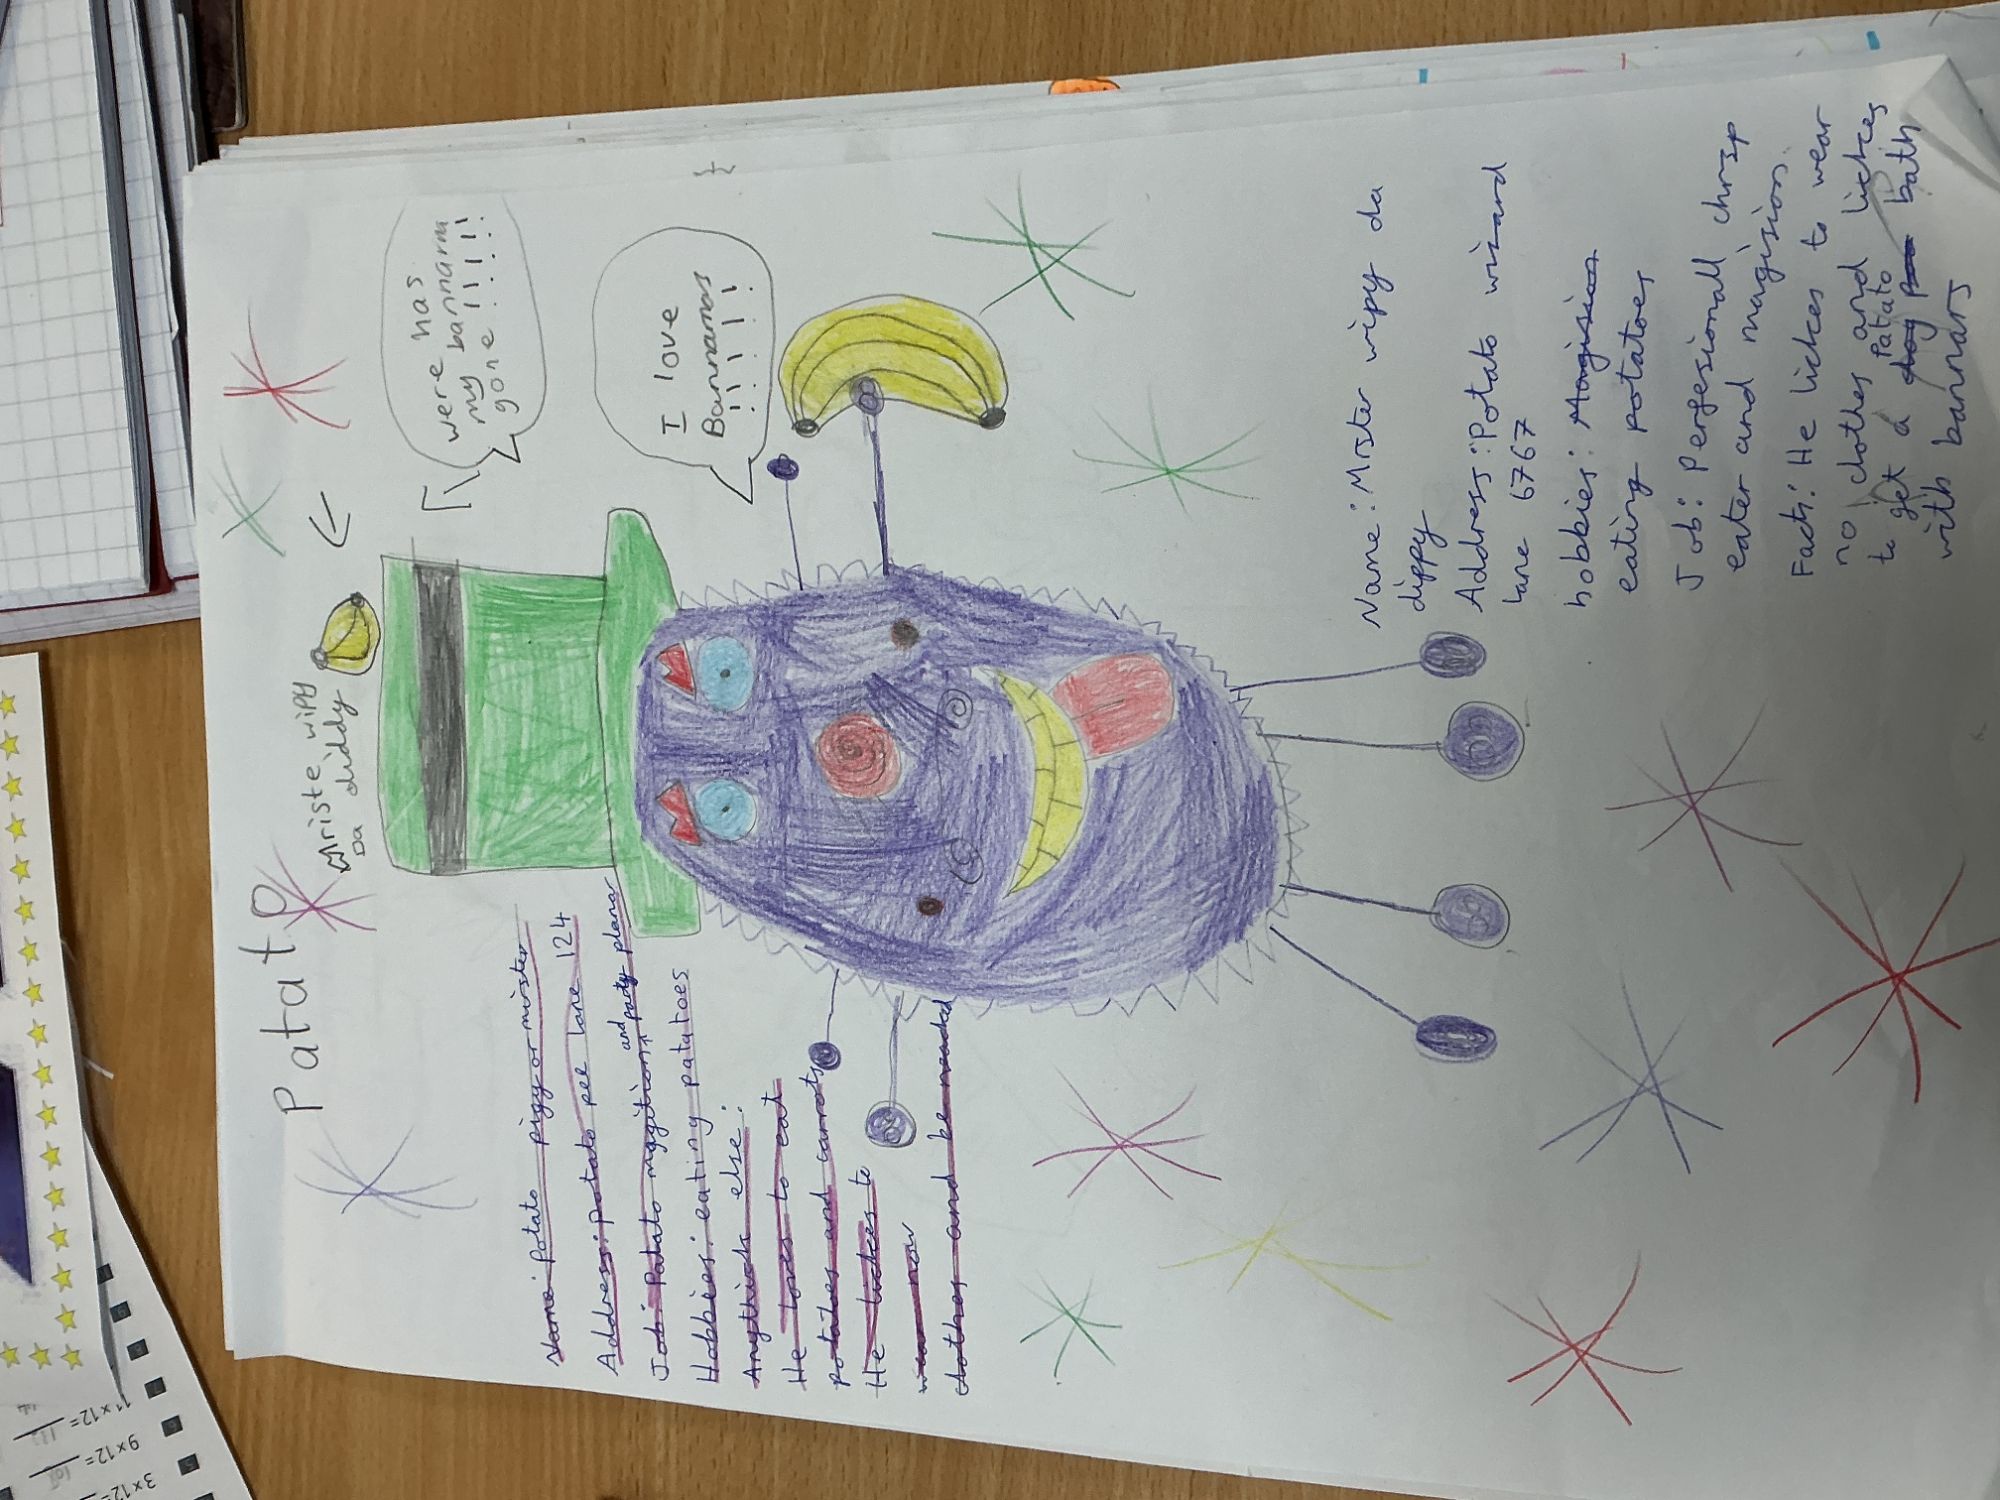 Patato
Mriste wipy
Da diddy
were has
my bannana
gone !!!!!!
I love
Bannanas
!!!!!!
Name: Potato pigy or mister
Address: potato pee lane 124
Job: Patato magition and party planer
Hobbies: eating patatoes
Anythick else:
He loves to eat
potatoes and carrots
He lickes to
wear now
clothes and be neaded
Name: Mrster wipy da
dippy
Address: Potato wizard
lane 6767
hobbies: Magision
eating potatoes
Job: Perfesionall chrsp
eater and magision
Fact: He lickes to wear
no clothes and lickes
to get a Patato bath
with bannars
11x12=
9x12=
108
3x12=